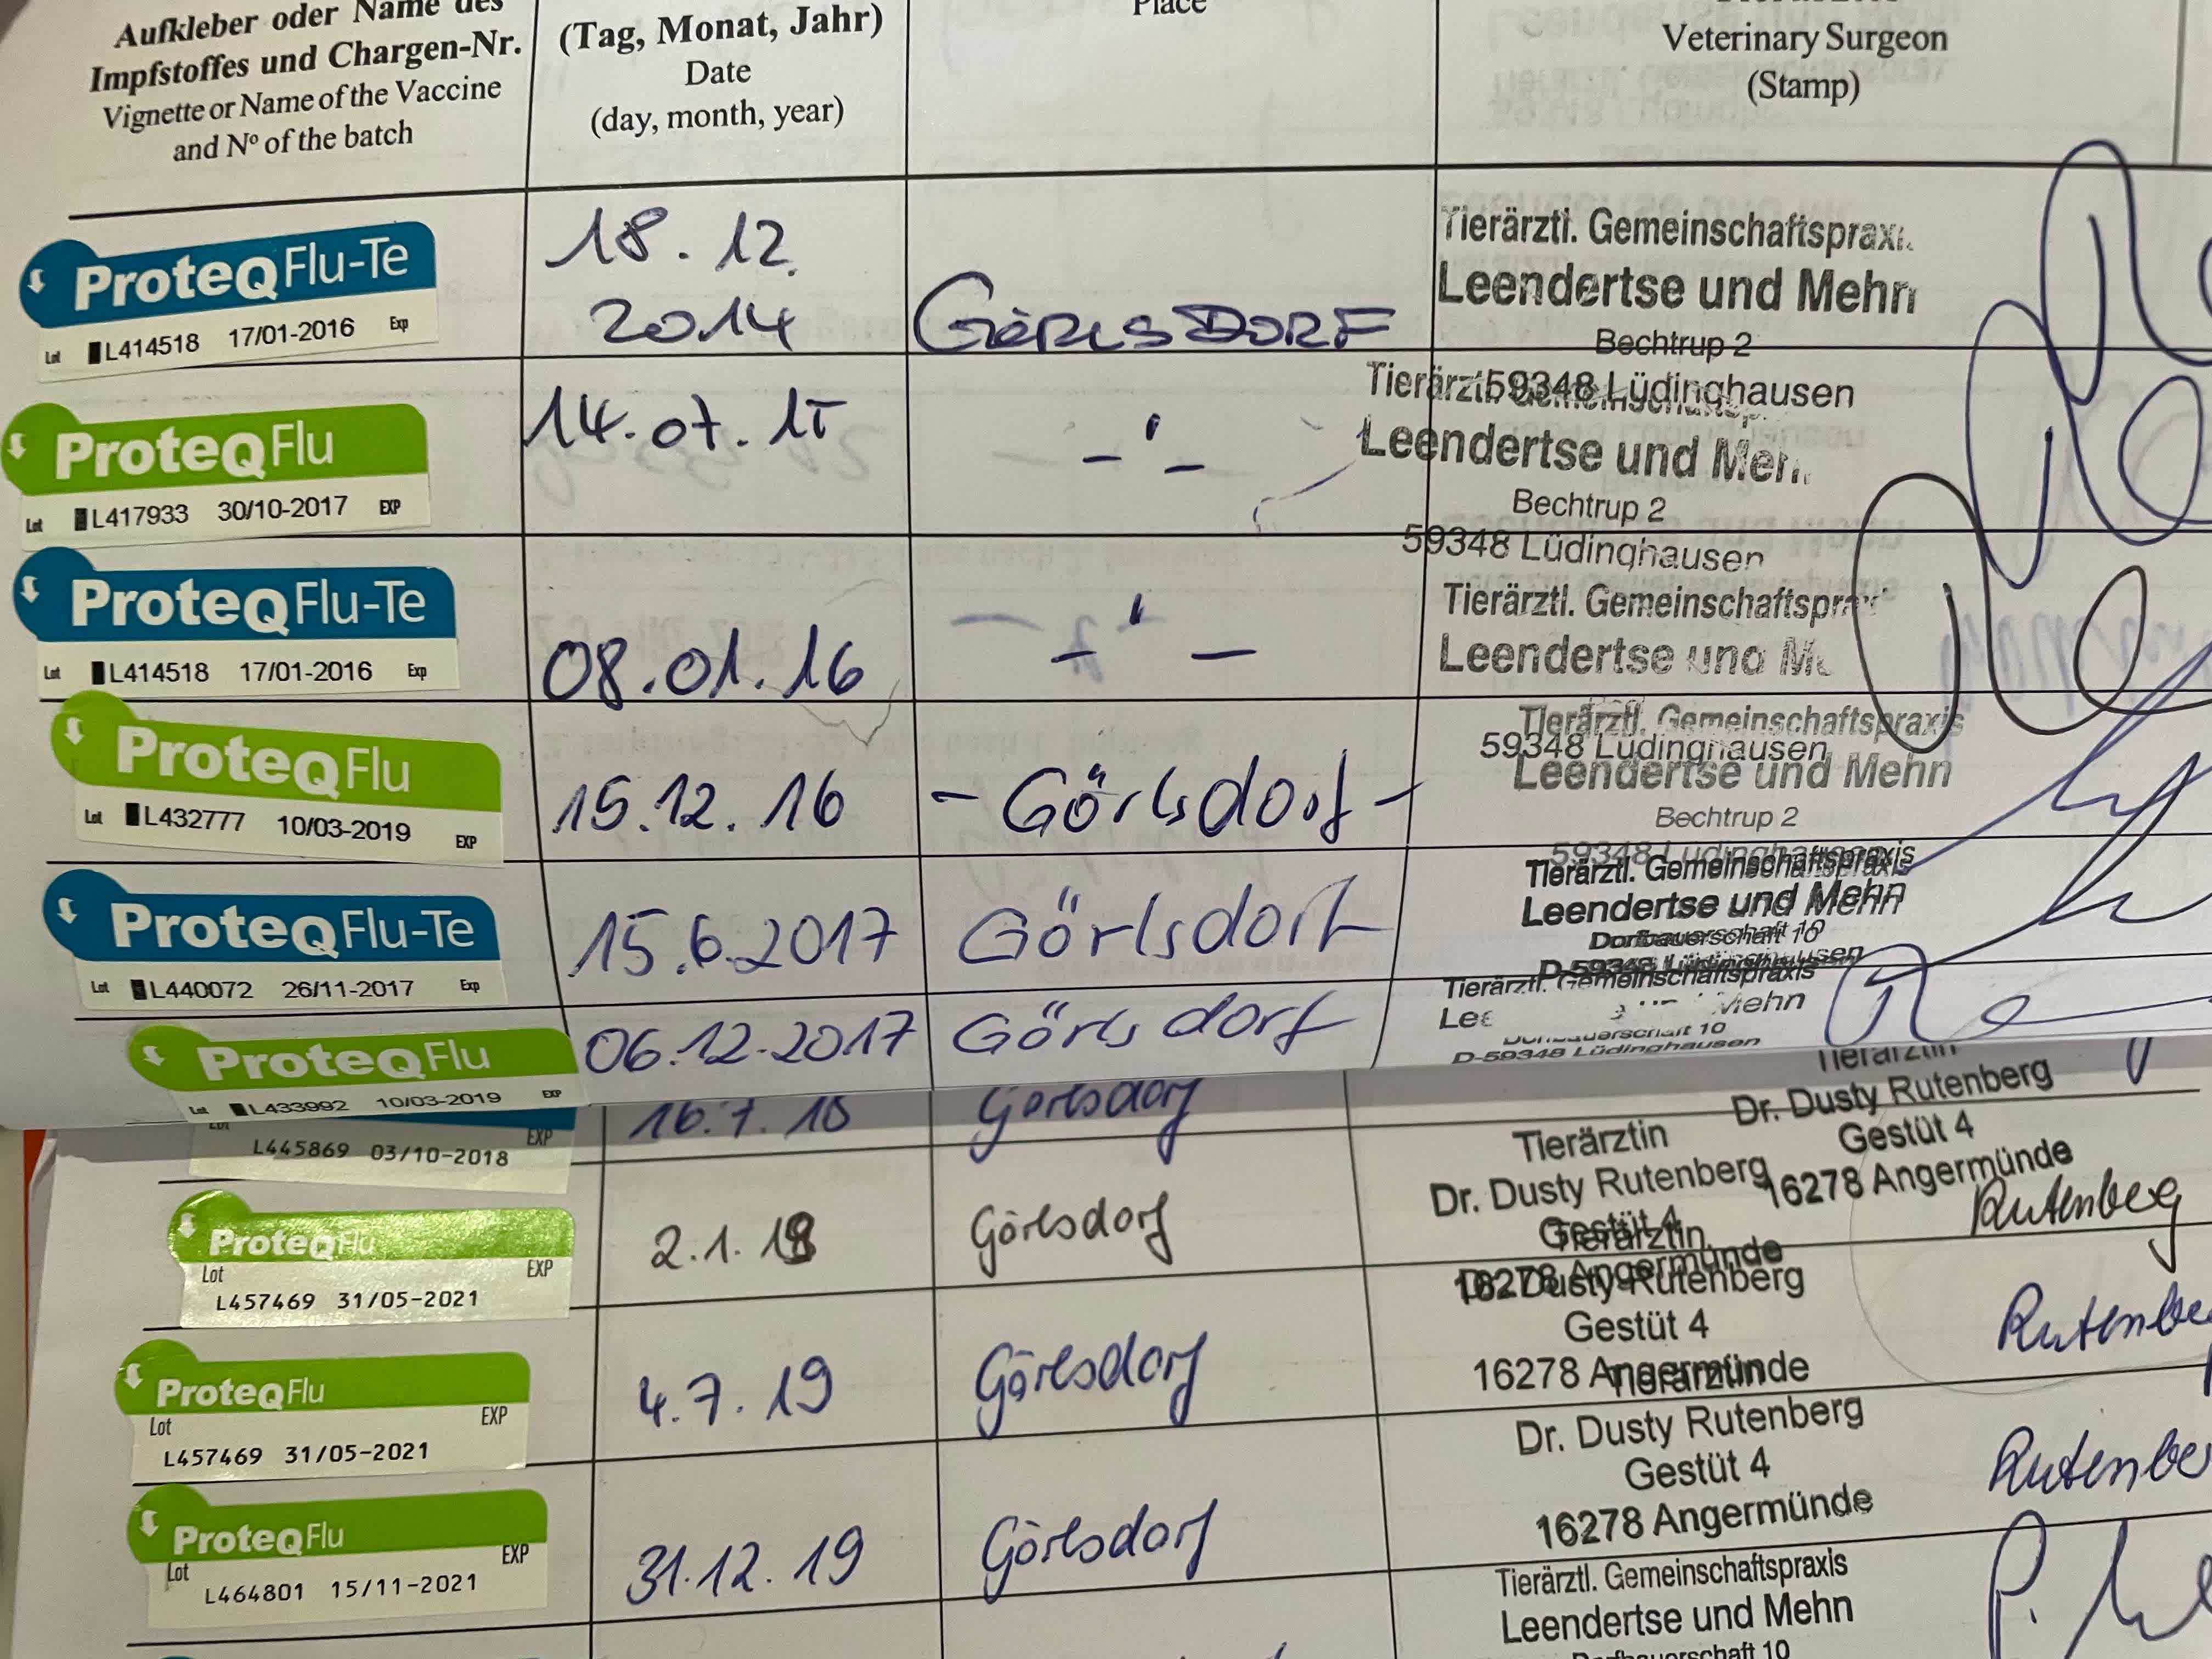 Aufkleber oder Name des
Impfstoffes und Chargen-Nr.
Vignette or Name of the Vaccine
and Nº of the batch
(Tag, Monat, Jahr)
Date
(day, month, year)
Place
Veterinary Surgeon
(Stamp)
ProteqFlu-Te
Lot L414518 17/01-2016 Exp
18.12.
2014
GÖRLSDORF
Tierärztl. Gemeinschaftspraxis
Leendertse und Mehn
Bechtrup 2
59348 Lüdinghausen
ProteqFlu
Lot L417933 30/10-2017 EXP
14.07.15
Leendertse und
Bechtrup 2
59348 Lüdinghausen
ProteqFlu-Te
Lot L414518 17/01-2016 Exp
08.01.16
Tierärztl.
Leendertse
59348 Lüdinghausen
ProteqFlu
Lot L432777 10/03-2019 EXP
15.12.16
- Görlsdorf -
Tierärztl. Gemeinschaftspraxis
Leendertse und Mehn
Bechtrup 2
59348 Lüdinghausen
ProteqFlu-Te
Lot L440072 26/11-2017 Exp
15.6.2017
Görlsdorf
Tierärztl. Gemeinschaftspraxis
Leendertse und Mehn
Dorfbauerschaft 10
D-59348 Lüdinghausen
ProteqFlu
Lot L433992 10/03-2019 EXP
06.12.2017
Görlsdorf
Tierärztl. Gemeinschaftspraxis
Mehn
Dorfbauerschaft 10
D-59348 Lüdinghausen
Lot EXP
L445869 03/10-2018
16.7.18
Görlsdorf
Tierärztin
Dr. Dusty Rutenberg
Gestüt 4
16278 Angermünde
ProteqFlu
Lot EXP
L457469 31/05-2021
2.1.
Görlsdorf
Tierärztin
Dr. Dusty Rutenberg
Gestüt 4
16278 Angermünde
Rutenberg
ProteqFlu
Lot EXP
L457469 31/05-2021
4.7.19
Görlsdorf
Tierärztin
Dr. Dusty Rutenberg
Gestüt 4
16278 Angermünde
ProteqFlu
Lot EXP
L464801 15/11-2021
31.12.19
Görlsdorf
Tierärztin
Dr. Dusty Rutenberg
Gestüt 4
16278 Angermünde
Tierärztl. Gemeinschaftspraxis
Leendertse und Mehn
Dorfbauerschaft 10